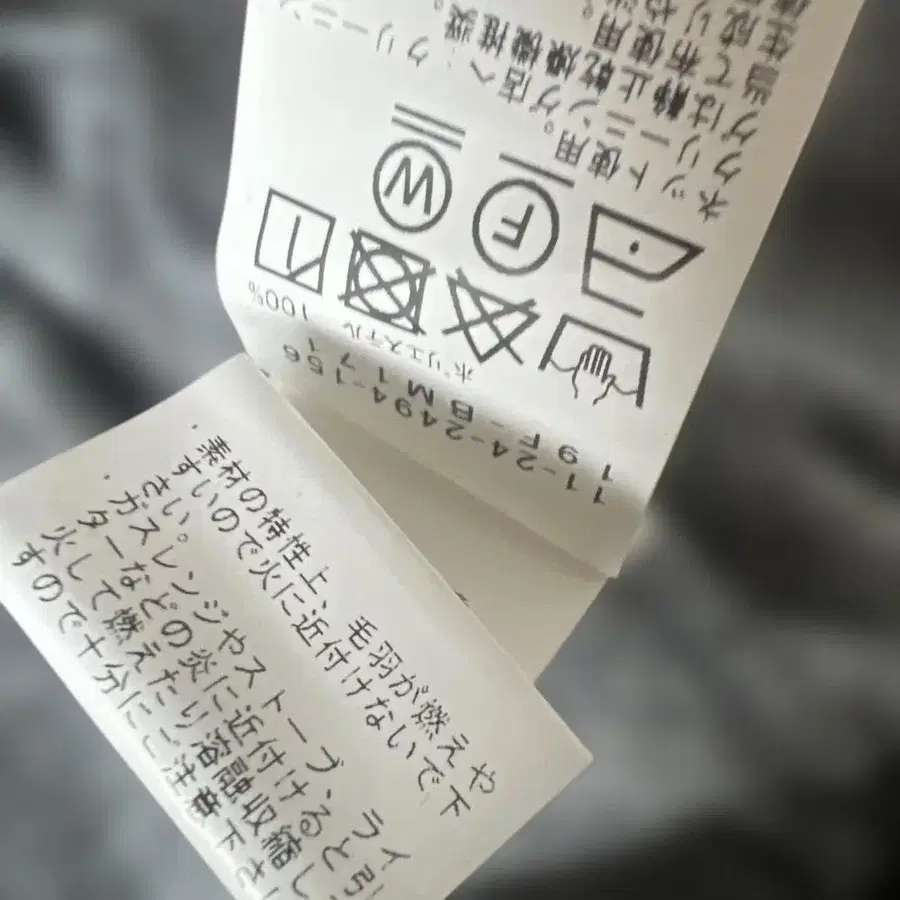 11-24-2494-156
19F-BM171
ポリエステル 100%
F
W
ネット使用。
クリーニング店へ. クリーニン
グは静止乾燥機推奨。
当て布使用。
生成りや
・素材の特性上、毛羽が燃えや
すいので火に近付けないで下
さい。
・ガスレンジやストーブ、ライ
ターなどの炎に近付けると引
火して燃えたり溶融収縮し
すので十分にご注意下さ